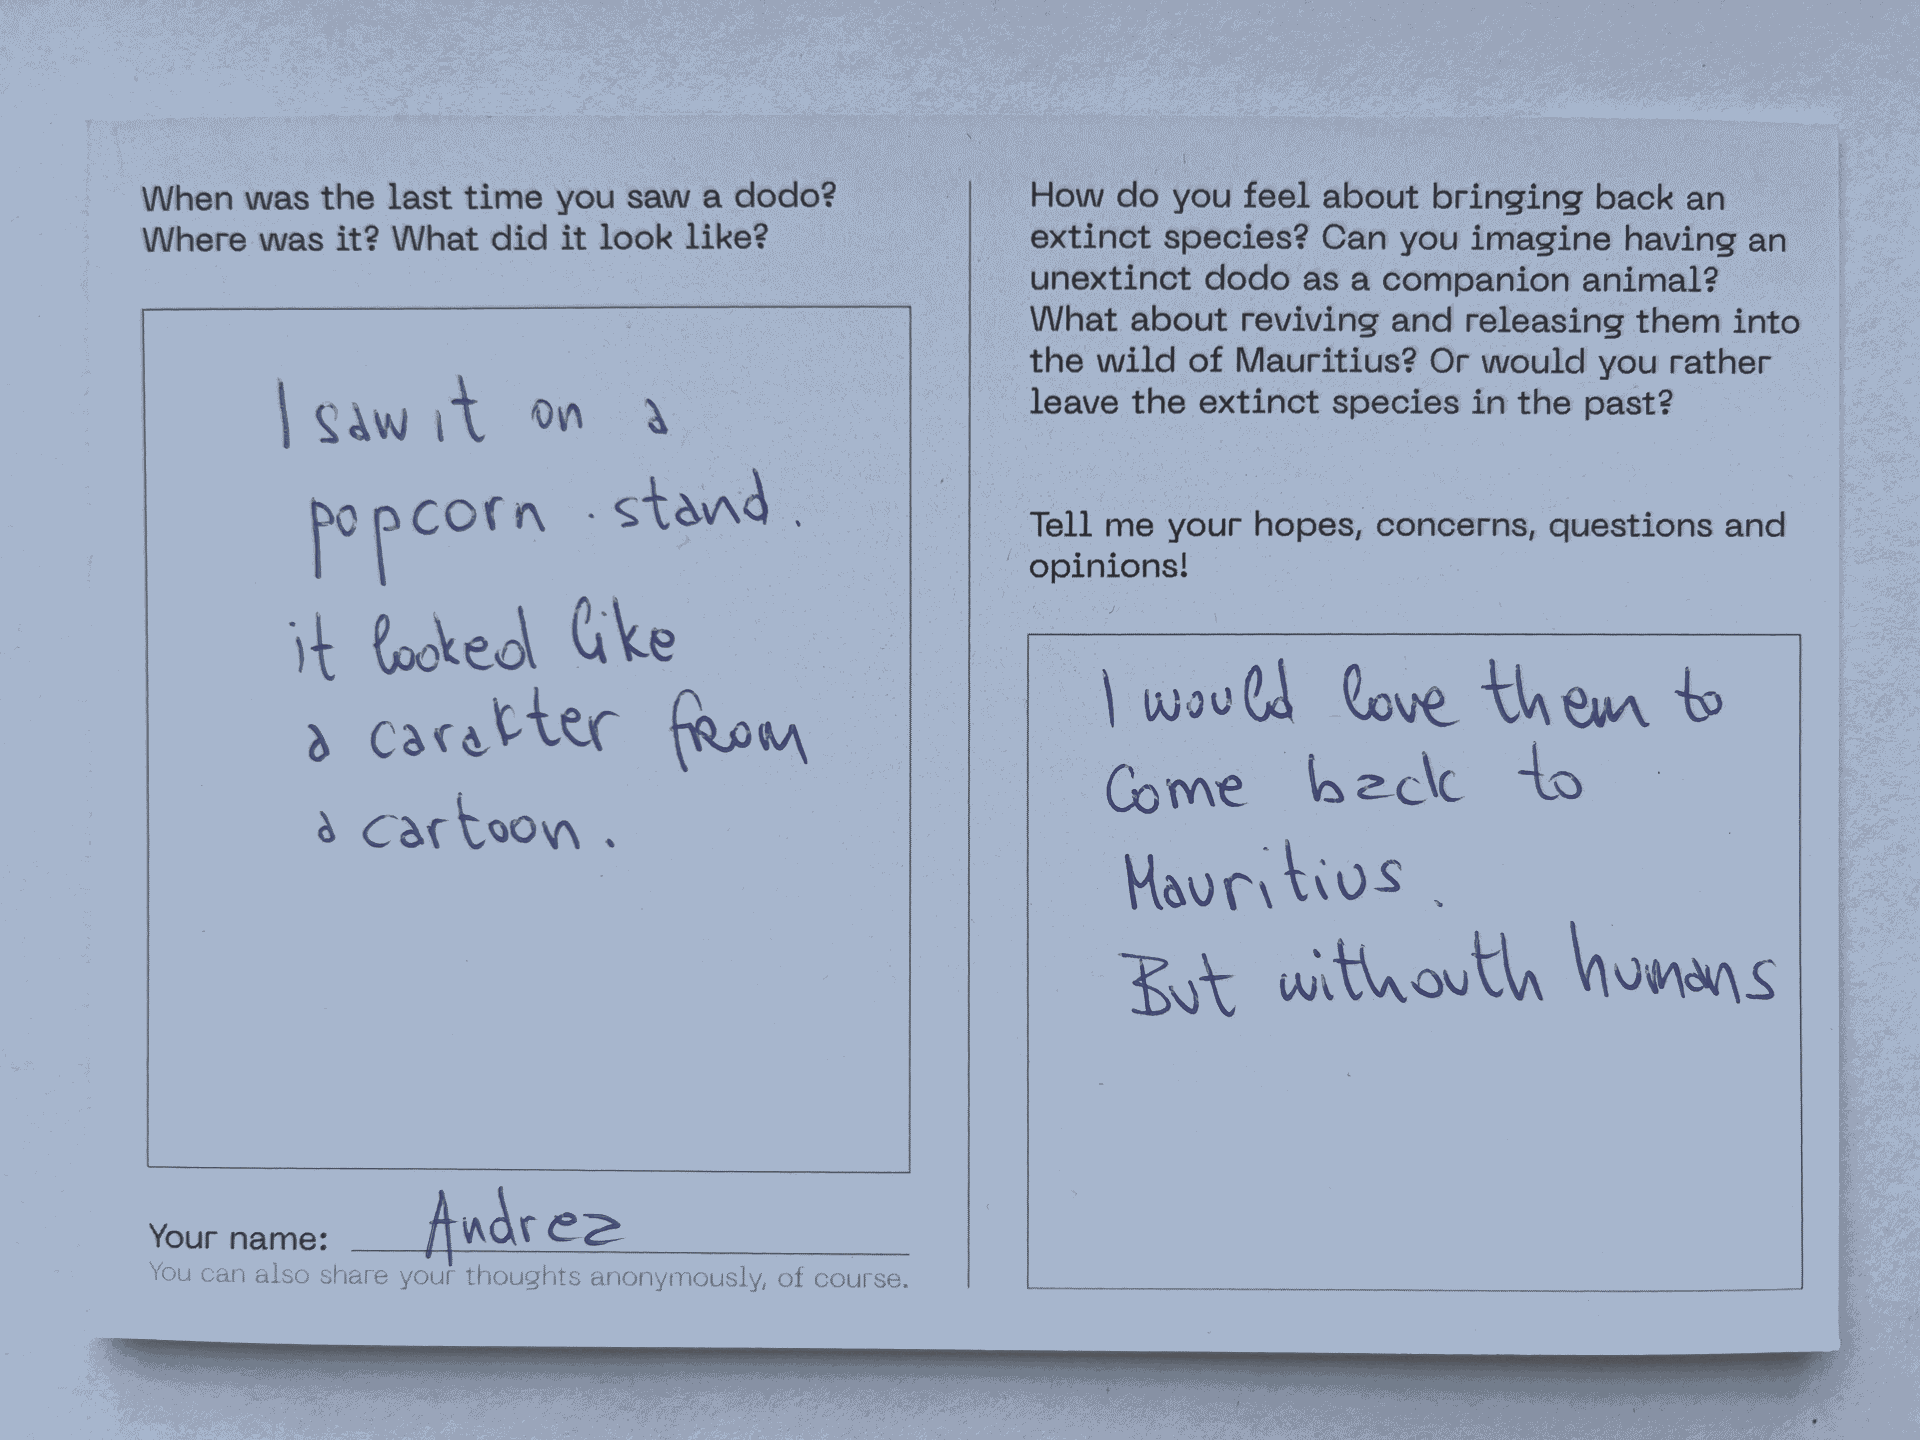 When was the last time you saw a dodo?
Where was it? What did it look like?
I saw it on a
popcorn · stand.
it looked like
a carakter from
a cartoon.
Your name: Andrea
You can also share your thoughts anonymously, of course.
How do you feel about bringing back an
extinct species? Can you imagine having an
unextinct dodo as a companion animal?
What about reviving and releasing them into
the wild of Mauritius? Or would you rather
leave the extinct species in the past?
Tell me your hopes, concerns, questions and
opinions!
I would love them to
Come back to
Mauritius.
But withouth humans